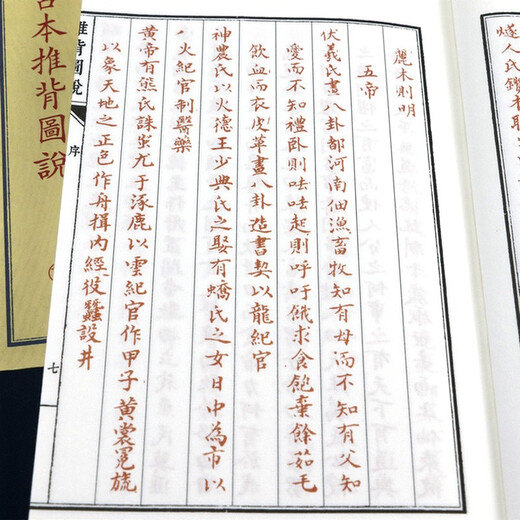 麗木則明
五帝
伏羲氏畫八卦都河南佃漁畜牧知有母而不知有父知
愛而不知禮臥則呿呿起則呼吁餓求食飽棄餘茹毛
飲血而衣皮革畫八卦造書契以龍紀官
神農氏以火德王少典氏之娶有蟜氏之女日中為市以
火紀官制醫藥
黃帝有熊氏誅蚩尤于涿鹿以雲紀官作甲子黃裳冕旒
以象天地之正色作舟楫內經役蠶設井
推背圖說
序
七
古本推背圖說
燧人氏鑽木取